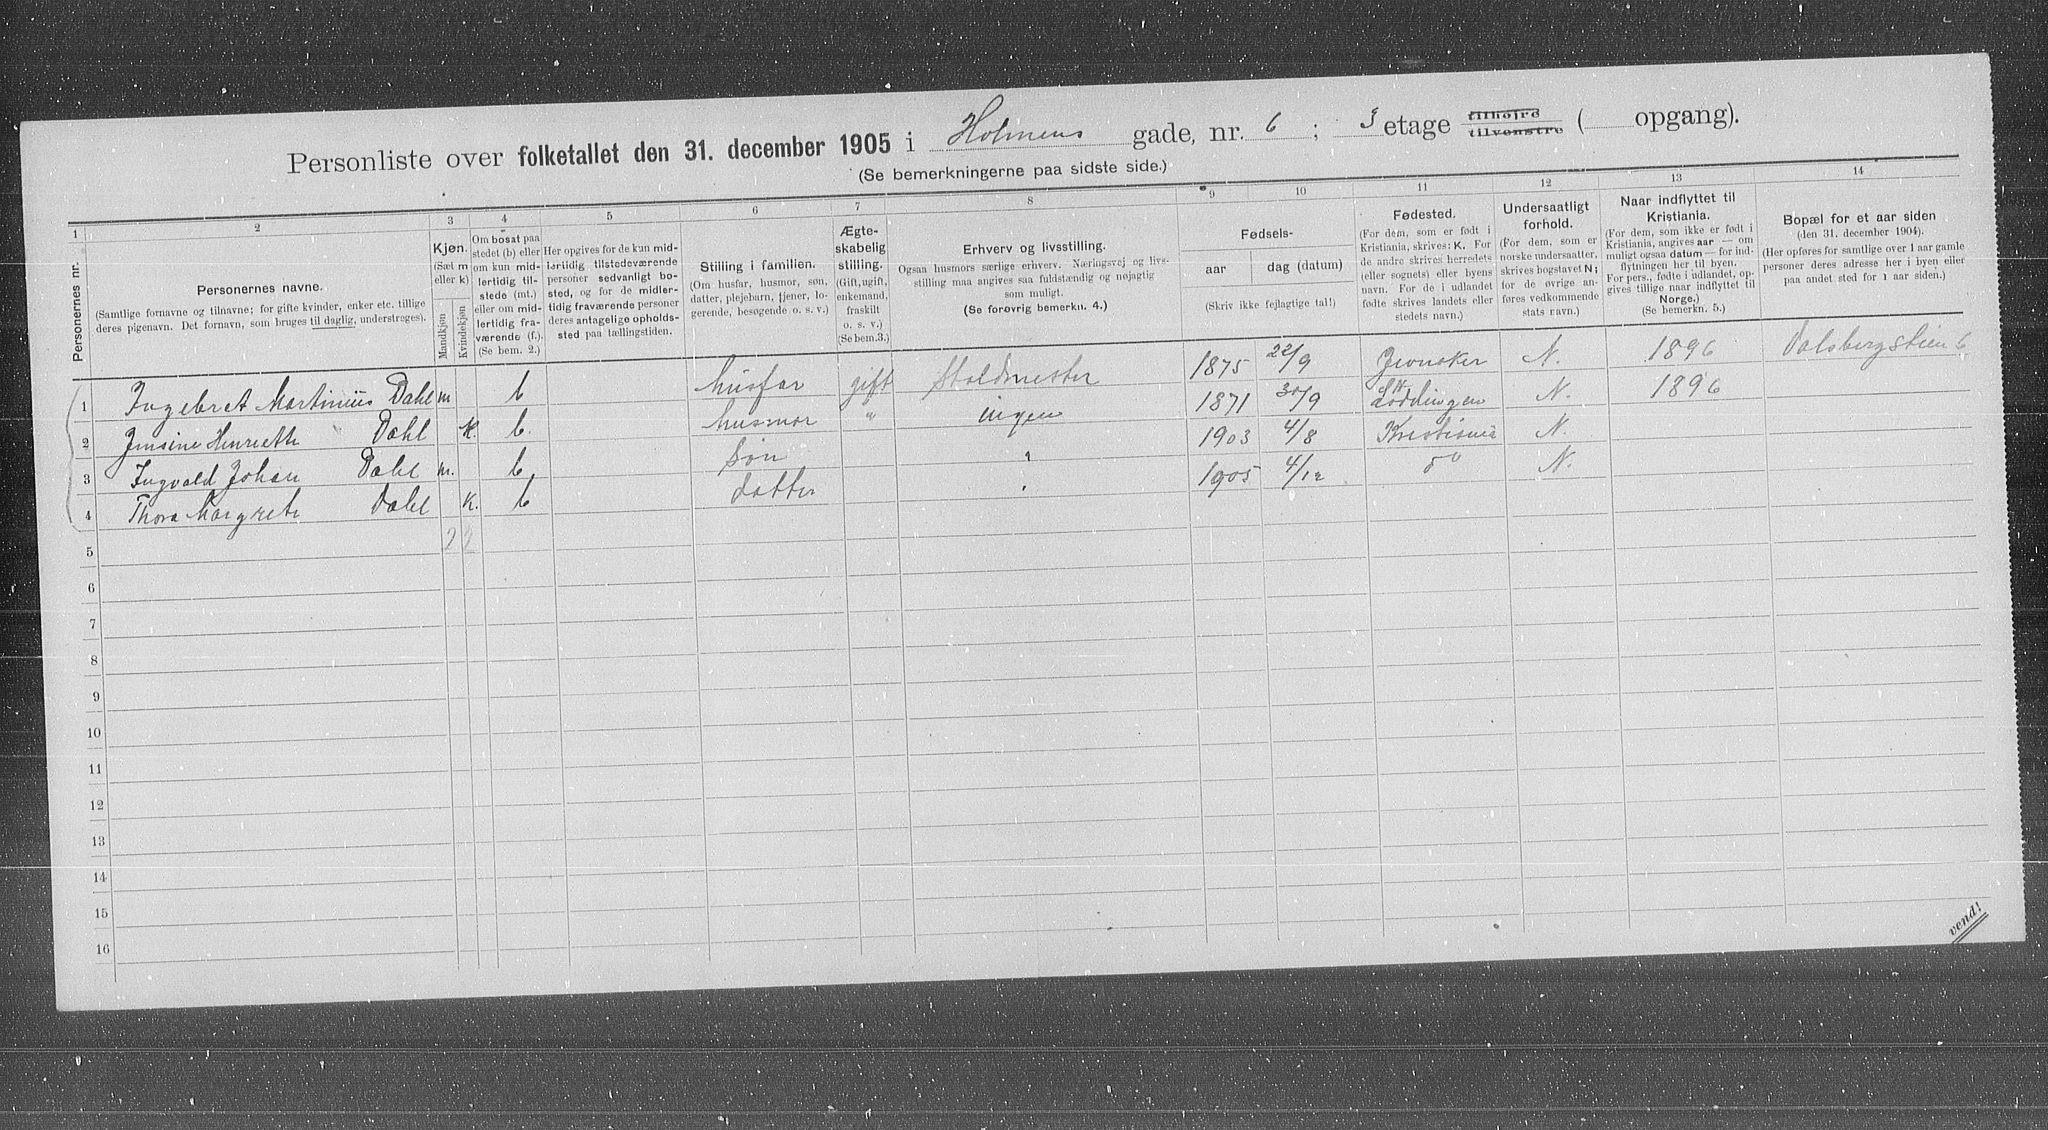 Personliste over folketallet den 31. december 1905 i Holmens gade, nr. 6 ; 3 etage tilhøjre tilvenstre ( opgang).
(Se bemerkningerne paa sidste side.)
1 2 3 4 5 6 7 8 9 10 11 12 13 14
Personernes nr.
Personernes navne.
(Samtlige fornavne og tilnavne; for gifte kvinder, enker etc. tillige
deres pigenavn. Det fornavn, som bruges til daglig, understreges).
Kjøn.
(Sæt m
eller k)
Mandkjøn
Kvindekjøn
Om bosat paa
stedet (b) eller
om kun mid-
lertidig til-
stede (mt.)
eller om mid-
lertidig fra-
værende (f.).
(Se bem. 2.)
Her opgives for de kun mid-
lertidig tilstedeværende
personer sedvanligt bo-
sted, og for de midler-
tidig fraværende personer
deres antagelige opholds-
sted paa tællingstiden.
Stilling i familien.
(Om husfar, husmor, søn,
datter, plejebarn, tjener, lo-
gerende, besøgende o. s. v.)
Ægte-
skabelig
stilling.
(Gift, ugift,
enkemand,
fraskilt
o. s. v.)
(Se bem.3.)
Erhverv og livsstilling.
Ogsaa husmors særlige erhverv. Næringsvej og livs-
stilling maa angives saa fuldstændig og nøjagtig
som muligt.
(Se forøvrig bemerkn. 4.)
Fødsels-
aar dag (datum)
(Skriv ikke fejlagtige tal!)
Fødested.
(For dem, som er født i
Kristiania, skrives: K. For
de andre skrives herredets
(eller sognets) eller byens
navn. For de i udlandet
fødte skrives landets eller
stedets navn.)
Undersaatligt
forhold.
(For dem, som er
norske undersaatter,
skrives bogstavet N;
for de øvrige an-
føres vedkommende
stats navn.)
Naar indflyttet til
Kristiania.
(For dem, som ikke er født i
Kristiania, angives aar — om
muligt ogsaa datum — for ind-
flytningen her til byen.
For pers., fødte i udlandet, op-
gives tillige naar indflyttet til
Norge.)
(Se bemerkn. 5.)
Bopæl for et aar siden
(den 31. december 1904).
(Her opføres for samtlige over 1 aar gamle
personer deres adresse her i byen eller
paa andet sted for 1 aar siden.)
1 Ingebret Martinius Dahl m b husfar gift Stoldmester 1875 22/9 Jevnaker N. 1896 Dalsbergstien 6
2 Jensine Henriette Dahl k. b. husmor " ingen 1871 30/9 Løddingen N. 1896
3 Ingvald Johan Dahl m. b. Søn 1903 4/8 Kristiania N.
4 Thora Margrete Dahl k. b datter 1905 4/12 do N.
5 2 2
6
7
8
9
10
11
12
13
14
15
16
vend!